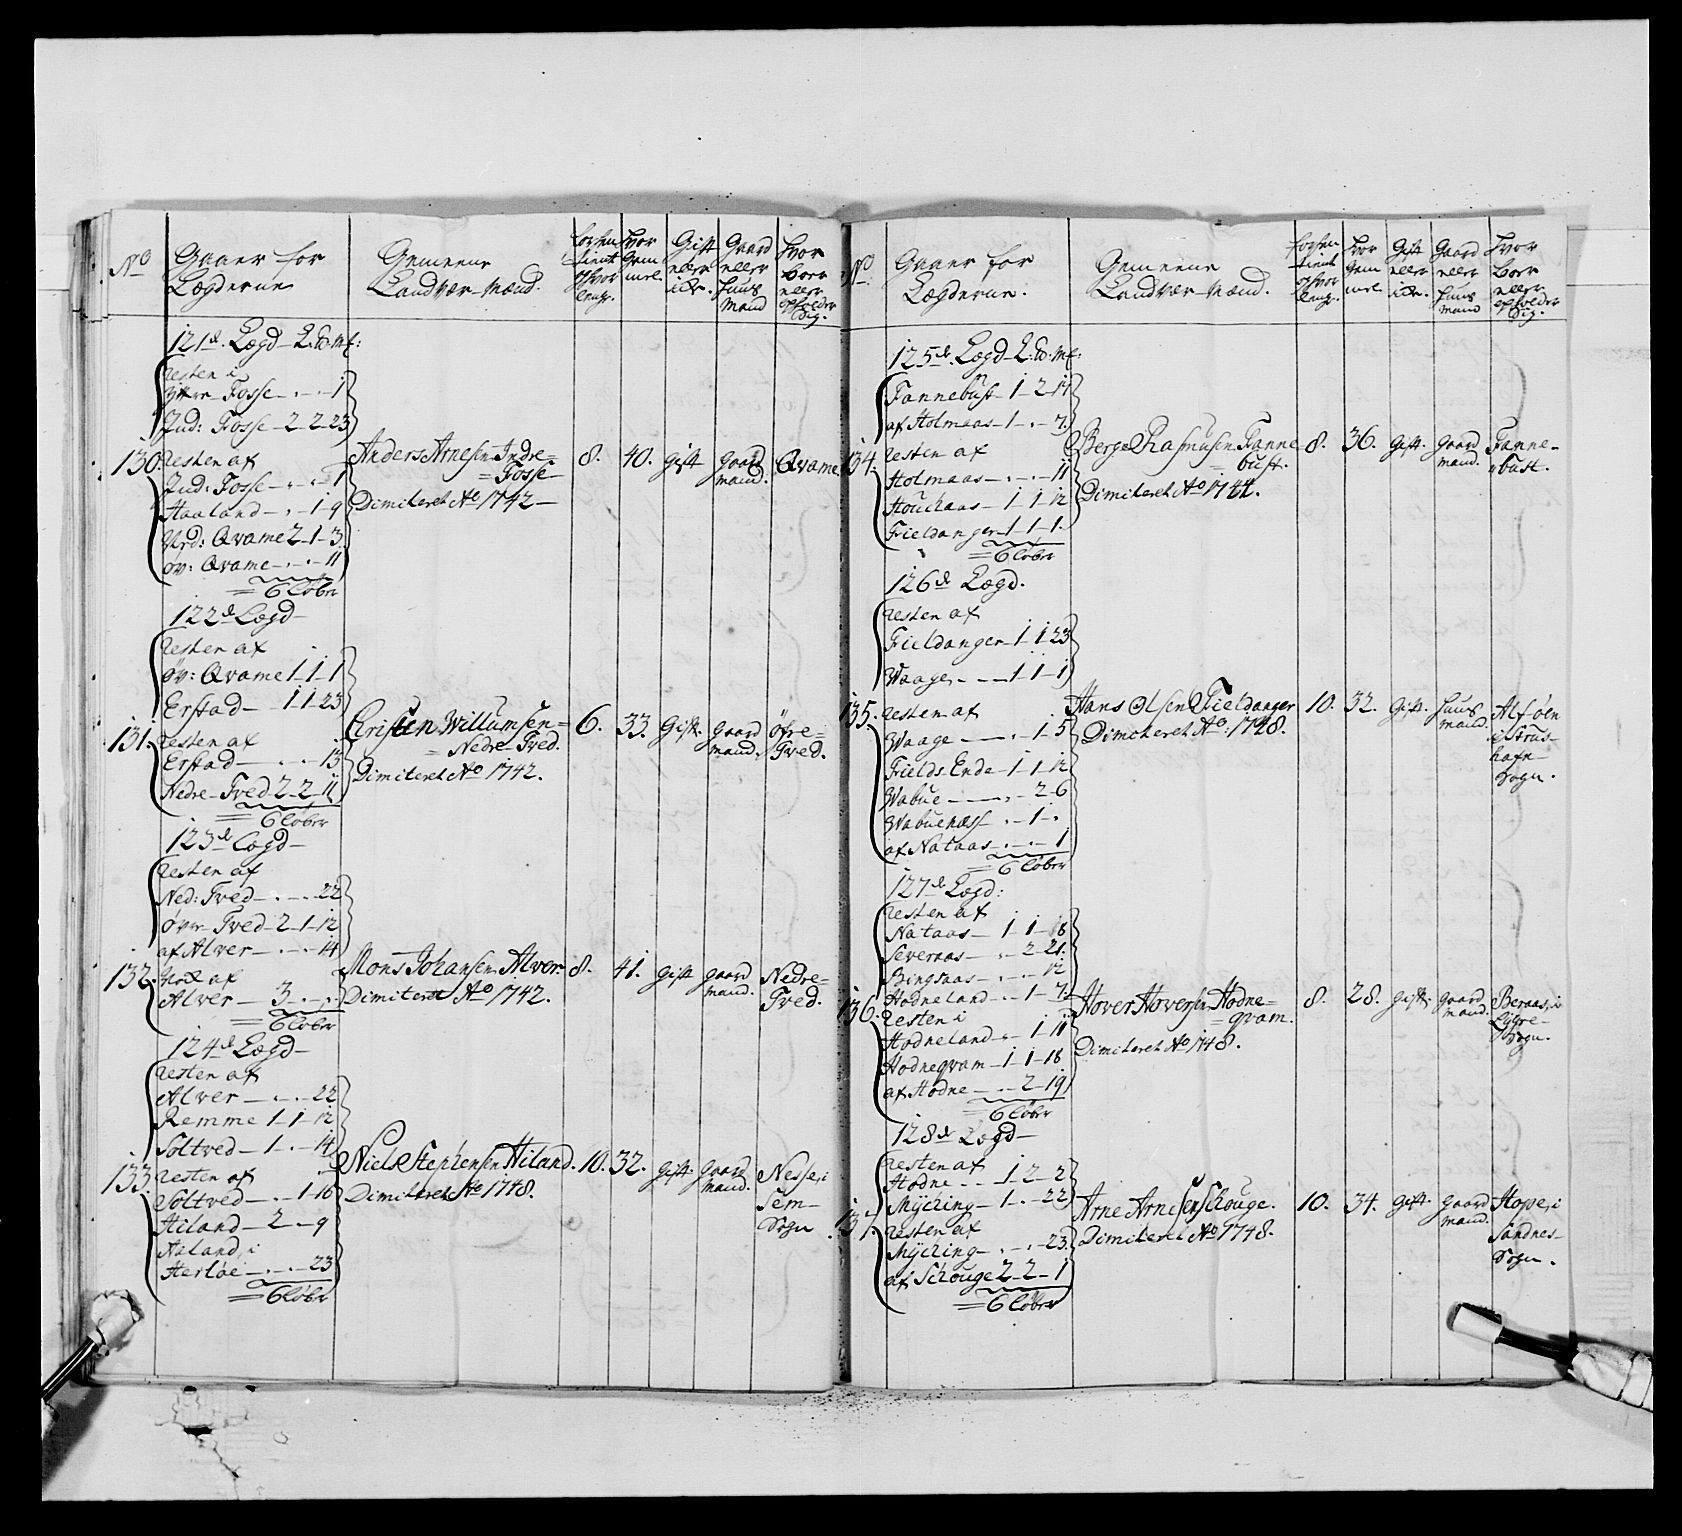 No
Gaarer for
Lægderne
Gemeene
Landvær-Mænd.
forhen
tient
og hvor
længe.
Hvor
Gam
mel.
Gift
eller
ich.
Gaard
eller
Huus
Mand
Hvor
boer
eller
opholder
Sig.
121de Lægd
resten i
Yttre Fosse - . - . - 1
Ind: Fosse - 2 - 2 - 23
130.
resten af
Ind: Fosse - . - . - 1
Haaland - . - 1 - 9
Nrd: Qvame 2 - 1 - 3
øv: Qvame - . - . - 11
= 6 Løber
Anders Arnesen Indre=
= Fosse
Dimiteret Ao 1742 -
8.
40.
gift
gaard
mand.
Qvame
122de Lægd -
resten af
øv: Qvame 1 - 1 - 1
Erstad - 1 - 1 - 23
131.
resten af
Erstad - . - . - 13
Nedre - Tved 2 - 2 - 11
= 6 Løber
Cristen Willumsen =
= Nedre Tved.
Dimiteret Ao 1742.
6.
33.
Gift.
gaard
mand.
Øfre=
Tved.
123de Lægd -
resten af
Ned: Tved - . - . - 22
Øvr Tved 2 - 1 - 12
af Alver - . - . - 14
132.
af
Alver - 3 - . - .
= 6 Løber
Mons Johansen Alver
Dimiteret Ao 1742.
8.
41.
gift
gaard
mand.
Nedre-
Tved.
124de Lægd -
resten af
Alver - . - . - 22
Remme 1 - 1 - 12
Soltved - 1 - . - 14
133.
resten af
Soltved - . - 1 - 16
Hiland - 2 - . - 9
Haland i
Herløe - . - . - 23
= 6 Løber
Niels Stephensen Hiland.
Dimiteret Ao 1748.
10.
32.
gift.
gaard
mand.
Nesse, i
Sem-
Sogn
No
Gaarer for
Lægderne.
Gemeene
Landvær-Mænd.
forhen
tient
og hvor
længe.
Hvor
Gam
mel.
Gift
eller
ich.
Gaard
eller
Huus
mand
Hvor
boer
eller
opholder
Sig.
125de Lægd
Fannebust 1 - 2 - 17
af Holmaas - 1 - . - 7
134.
resten af
Holmaas - . - . - 11
Houchaas - 1 - 1 - 12
Fieldanger - 1 - 1 - 1.
= 6 Løber
Berge Rasmusen Fanne
= bust.
Dimiteret Ao 1744.
8.
36.
gift.
gaard
mand.
Fanne-
bust.
126de Lægd.
resten af
Fieldanger - 1 - 1 - 23
Waage - 1 - 1 - 1
135.
resten af
Waage - . - 1 - 5
Fields Ende - 1 - 1 - 12
Wabue - . - 2 - 6
Wabuenæss - . - 1 - .
af Nataas - . - . - 1
= 6 Løber
Hans Olsen Fieldanger
Dimiteret Ao. 1748.
10.
32.
gift.
Huus
mand.
Alføen
i Strus-
hafn-
Sogn.
127de Lægd:
resten af
Nataas - 1 - 1 - 18
Severaas - . - 2 - 21.
Bingnaas - . - . - 12
Hodneland - . - 1 - 7
136.
resten i
Hodneland - . - 1 - 11
Hodneqvam - 1 - 1 - 18
af Hodne - . - 2 - 19
= 6 Løber
Hover Hoversen Hodne=
= qvam.
Dimiteret Ao 1748.
8.
28.
gift.
gaard
mand.
Beraas, i
Lygre-
Sogn.
128de Lægd -
resten af
Hodne - . 1 - 2 - 2
Mycking - 1 - . - 22
137.
resten af
Mycking - . - . - 23
af Schouge 2 - 2 - 1
= 6 Løber
Arne Arnesen Schouge.
Dimiteret Ao 1748.
10.
34.
gift.
gaard
mand.
Hope, i
Sandnes-
Sogn.